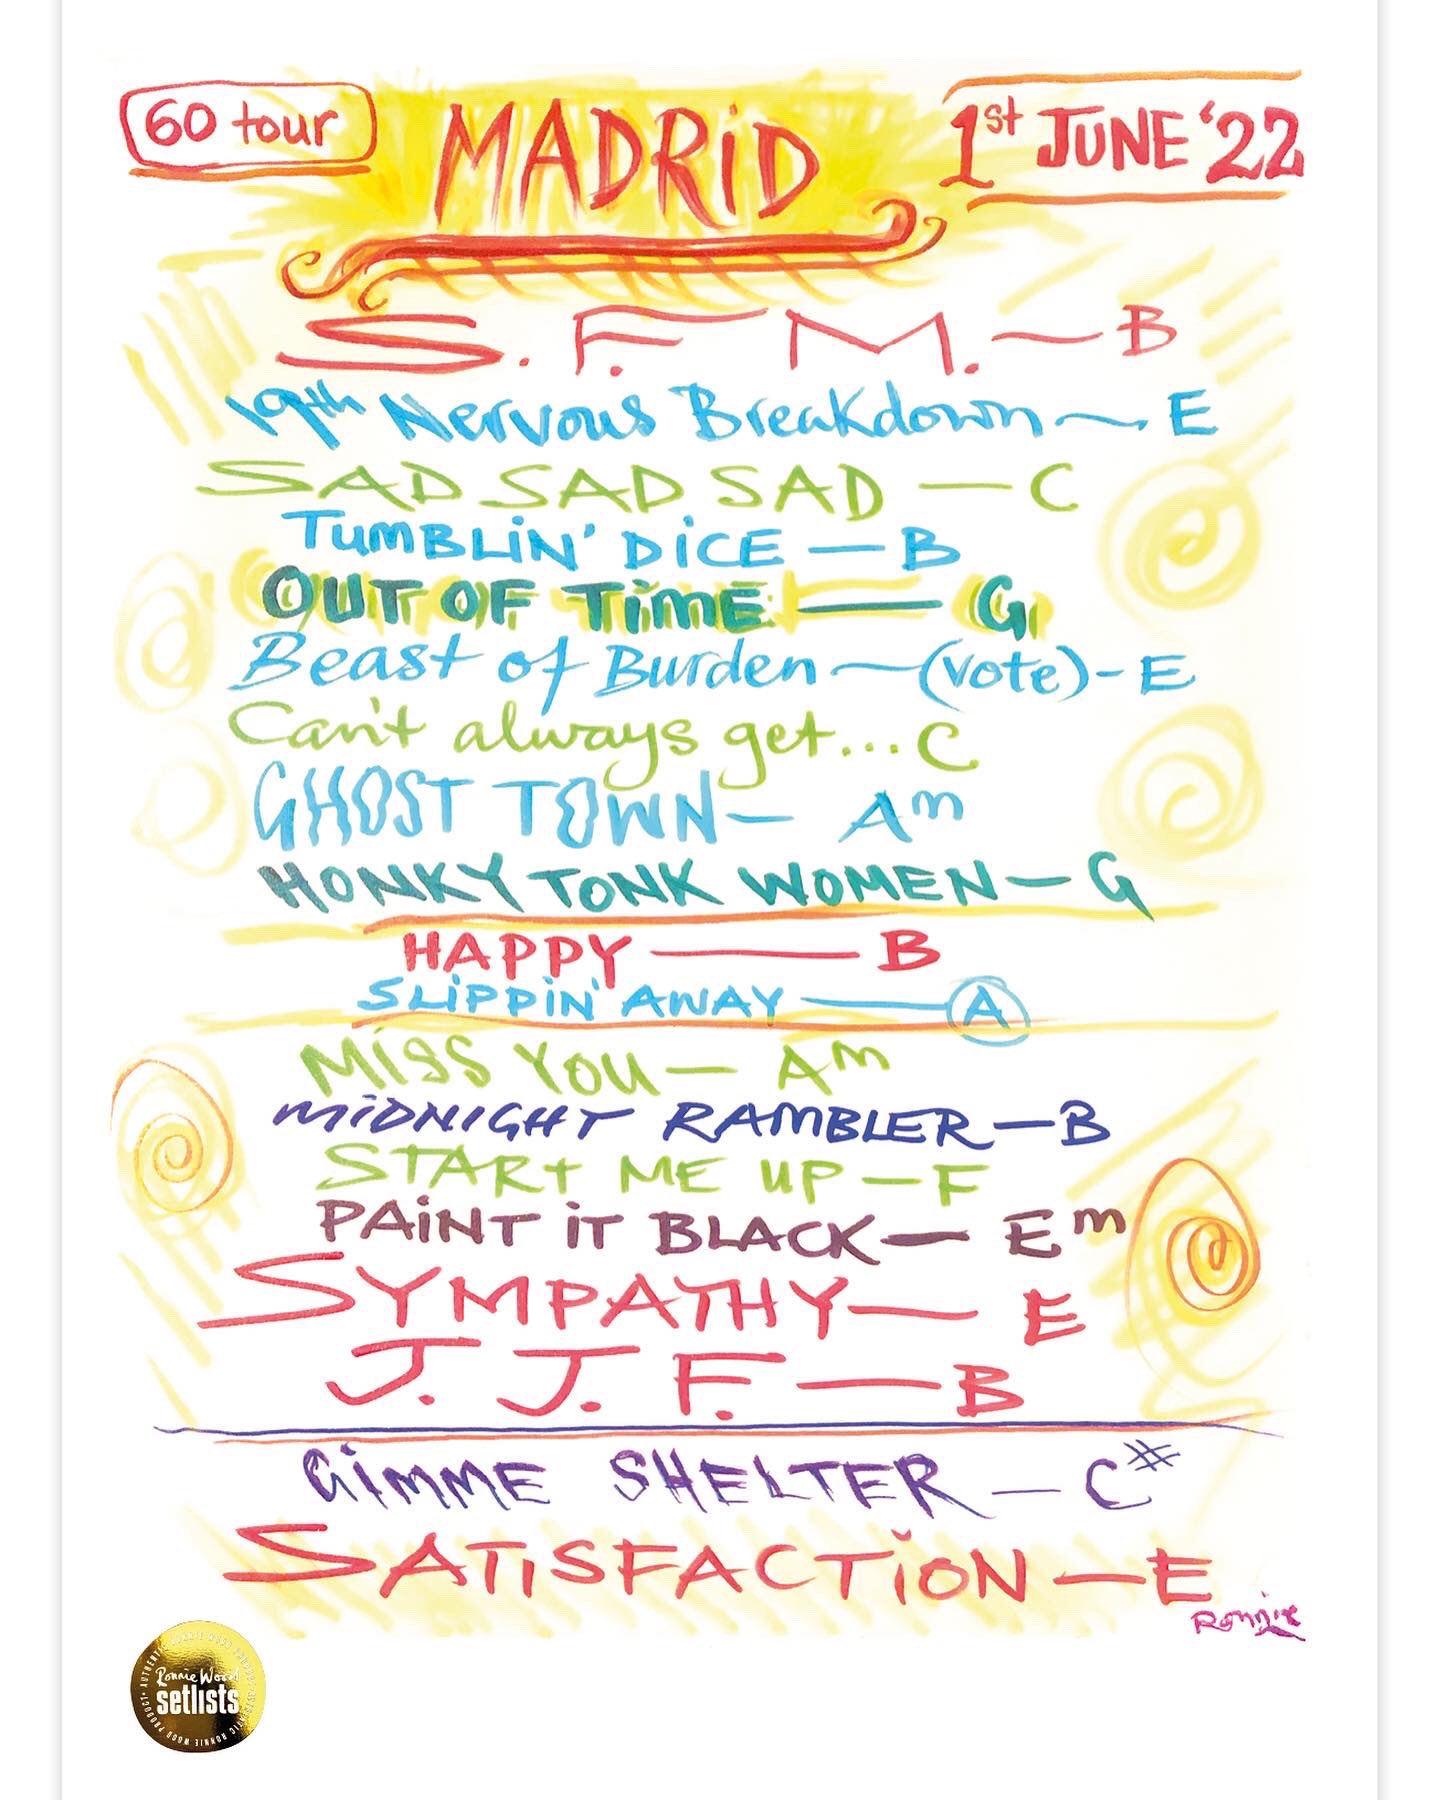 60 tour
MADRiD
1st JUNE '22
S. F. M. — B
19th Nervous Breakdown ~ E
SAD SAD SAD — C
TUMBLiN' DiCE — B
OUT OF TimE — G
Beast of Burden ~ (vote) - E
Can't always get... C
GHOST TOWN — Am
HONKY TONK WOMEN — G
HAPPY — B
SLiPPiN' AWAY — A
MiSS YOU — Am
MiDNIGHT RAMBLER — B
START ME UP — F
PAiNT iT BLACK — Em
SYMPATHY — E
J. J. F. — B
GiMME SHELTER — C#
SATiSFACTiON — E
Ronnie
AUTHENTIC RONNIE WOOD PRODUCT • AUTHENTIC RONNIE WOOD PRODUCT •
Ronnie Wood
setlists